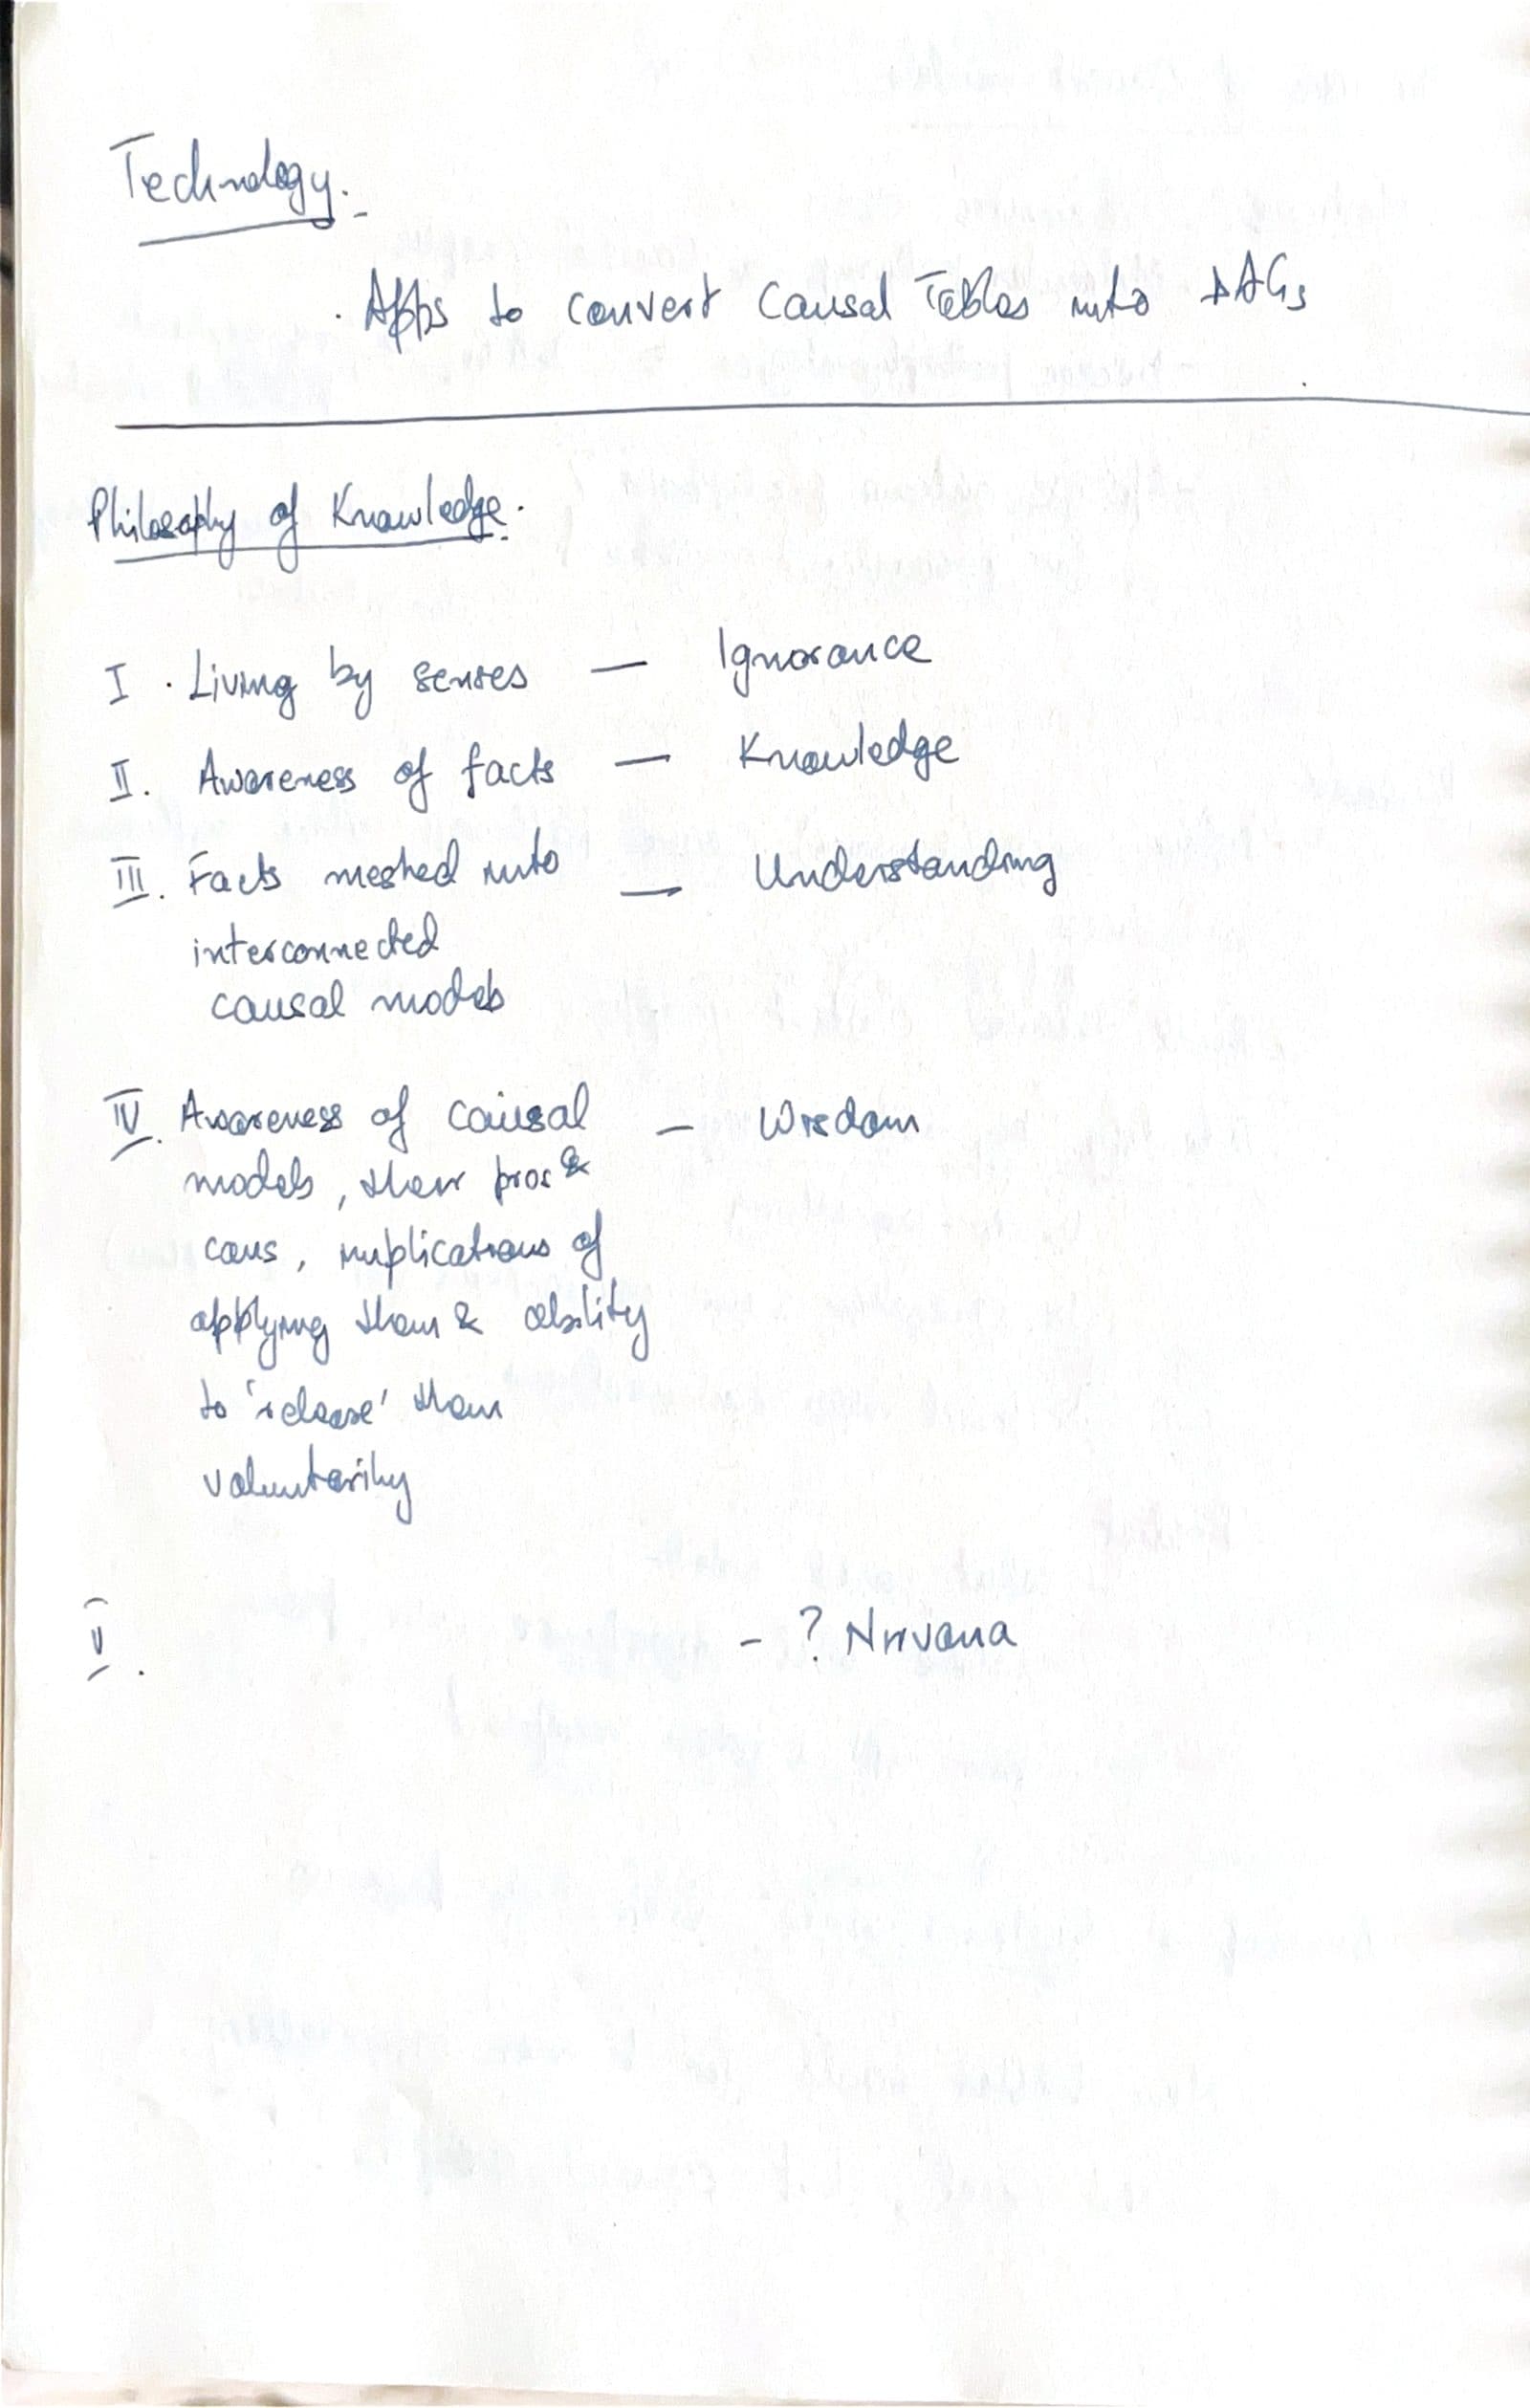 Technology.-
. Apps to convert Causal Tables into DAGs
Philosophy of Knowledge.
I . Living by senses — Ignorance
II. Awareness of facts — Knowledge
III. Facts meshed into — Understanding
interconnected
causal models
IV. Awareness of causal — Wisdom
models, their pros &
cons, implications of
applying them & ability
to 'release' them
voluntarily
V. - ? Nirvana